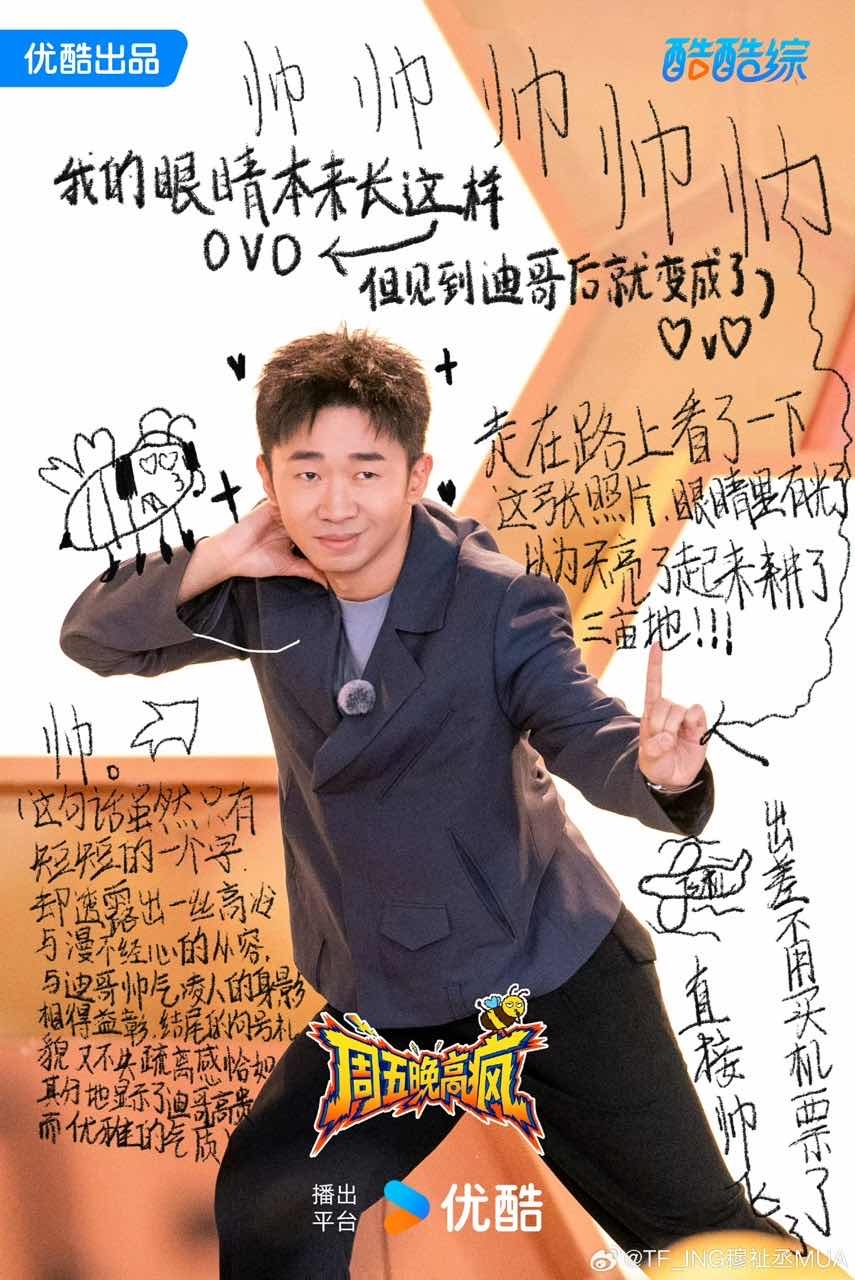 优酷出品
酷酷综
帅 帅 帅 帅 帅
我的眼睛本来长这样
OVO
但见到迪哥后就变成了
♡v♡
走在路上看了一下
这张照片,眼睛里有光了
以为天亮了起来耕了
三亩地!!!
帅。
(这句话虽然只有
短短的一个字,
却透露出一丝高冷
与漫不经心的从容,
与迪哥帅气凌人的身影
相得益彰,结尾的句号礼
貌又不失疏离感恰如
其分地显示了迪哥高贵
而优雅的气质)
出差不用买机票了
直接帅飞了
周五晚高疯
播出
平台
优酷
@TF_ING穆祉丞MUA